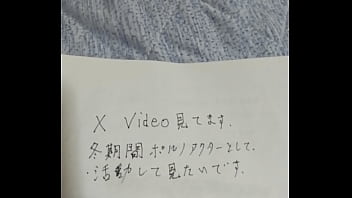 X Video見てます.
冬期間ポルノアクターとして.
・活動して見たいです.